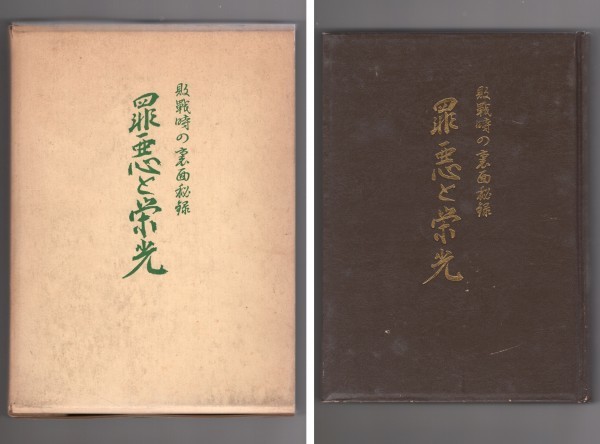 敗戦時の裏面秘録
罪悪と栄光
敗戦時の裏面秘録
罪悪と栄光